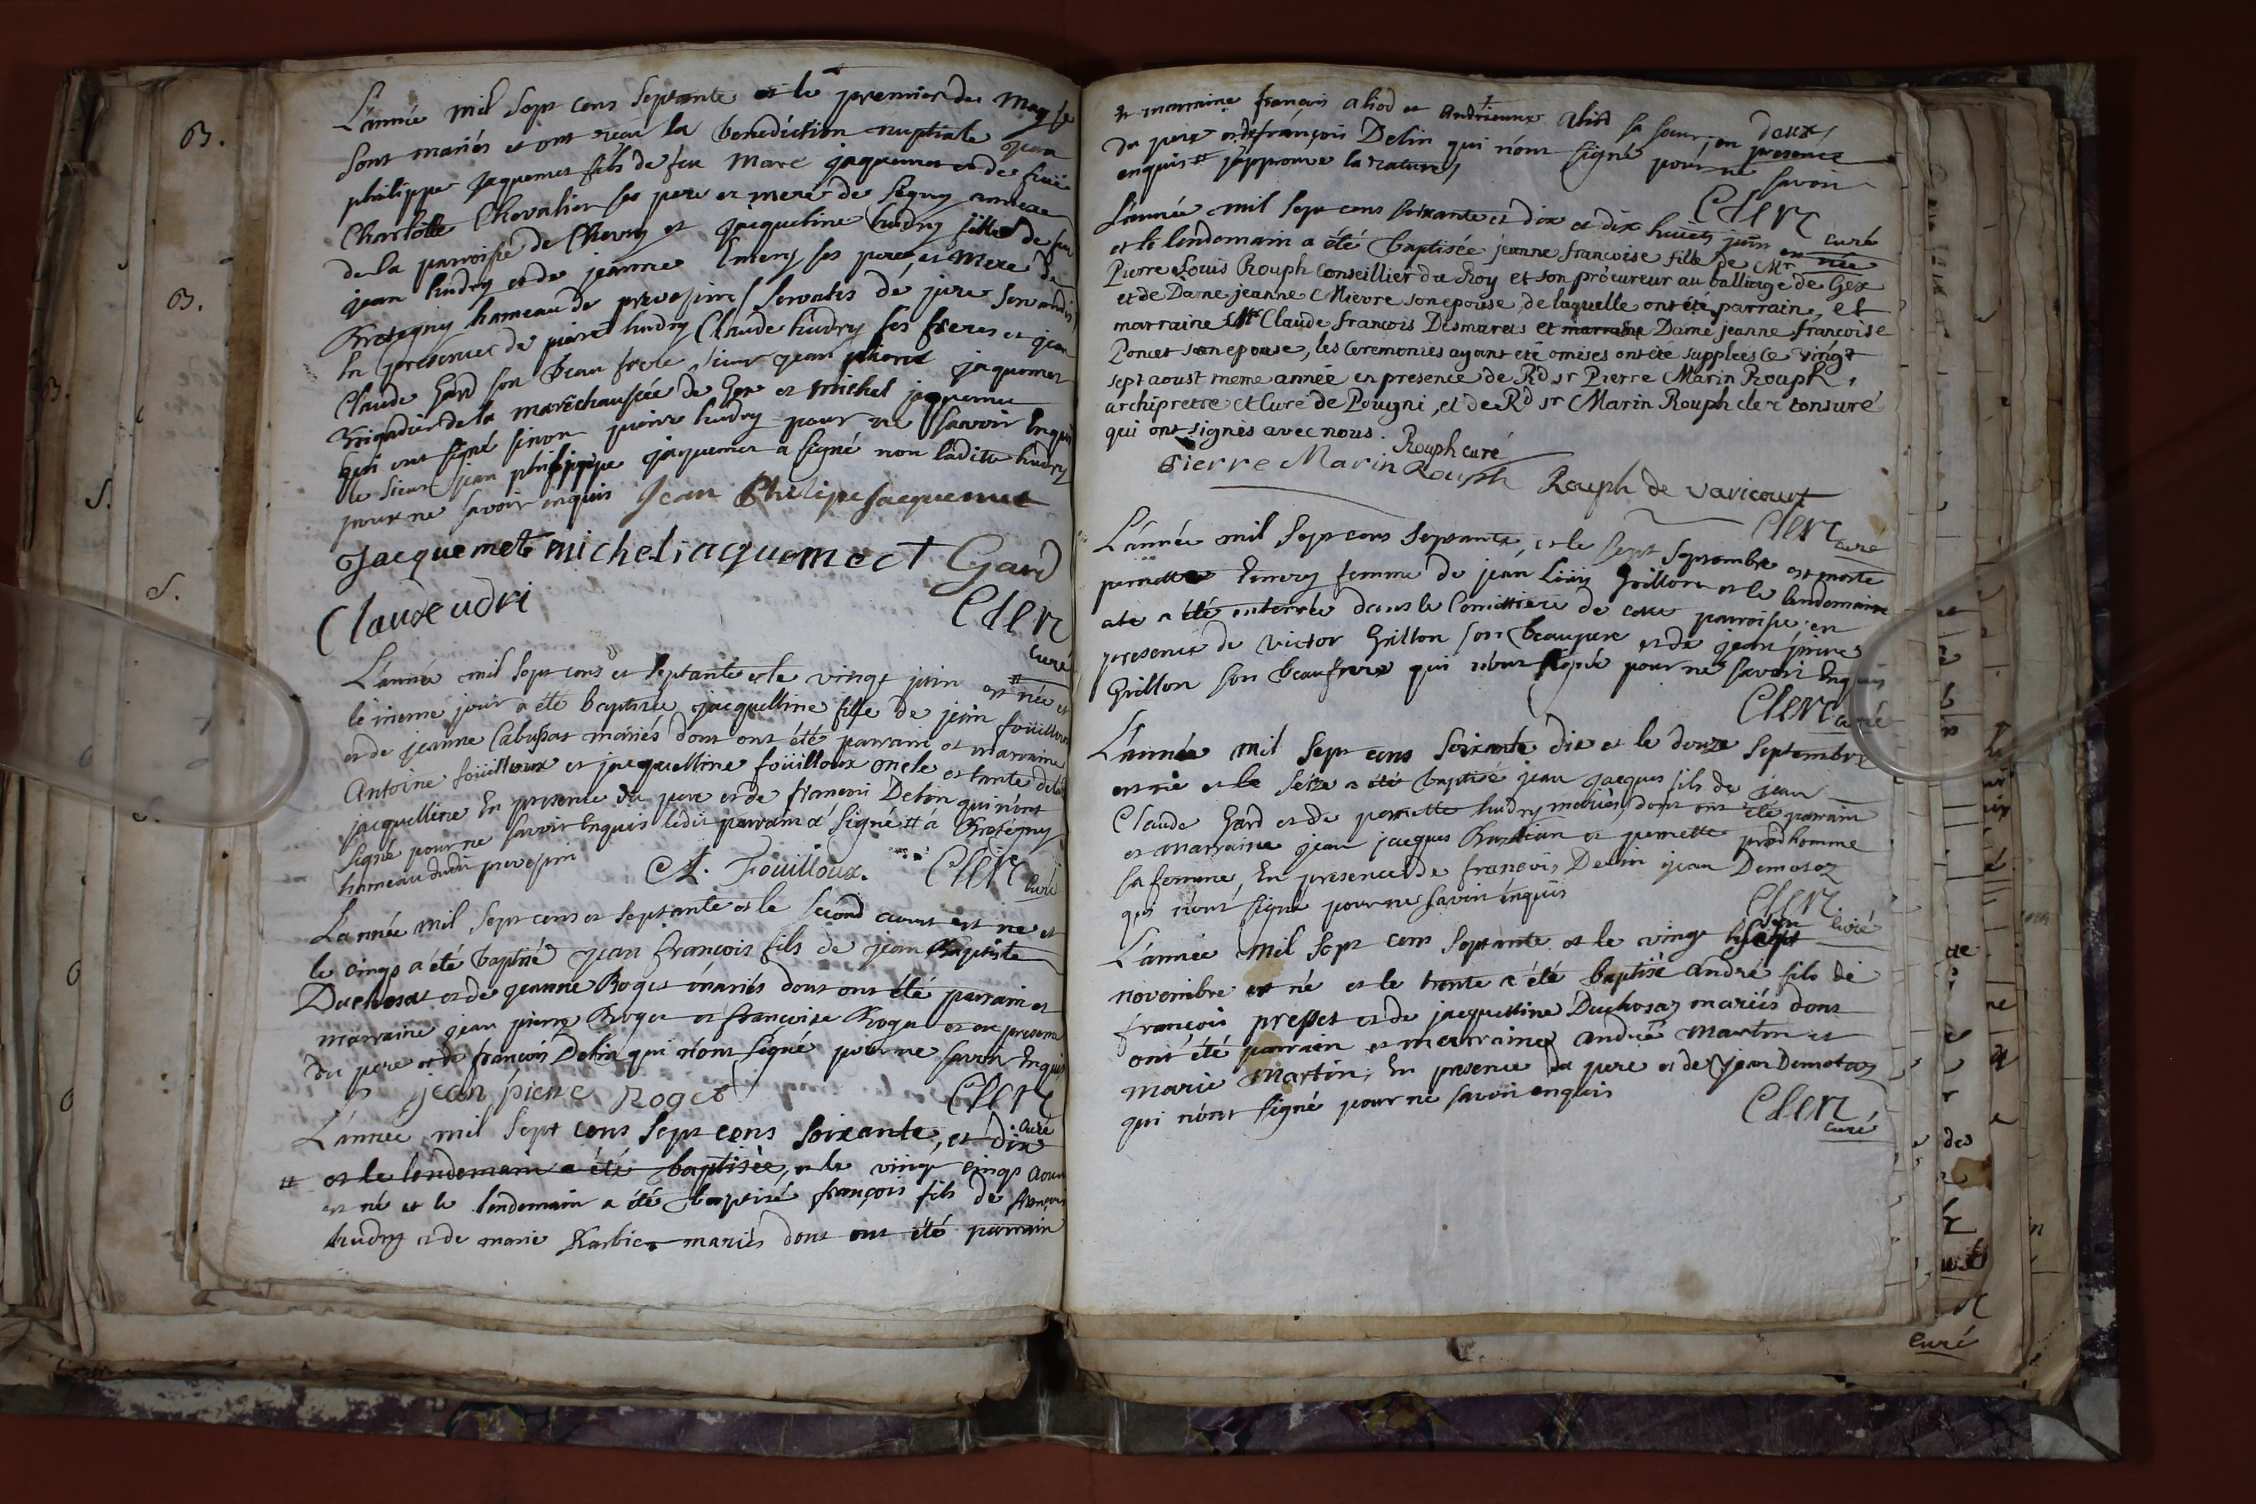 B.
B.
B.
S.
S.
L'année mil sept cens septante et le premier de may se
sont mariés et ont reçu la benediction nuptiale jean
philippe jaquemet fils de feu marc jaquemet et de feuë
Charlotte Chevalier ses pere et mere de segny annexe
de la parroisse de Chevry et jacqueline hudry fille de feu
jean hudry et de jeanne Emery ses pere et mere de
Bretegny hameau de prevessin / servatis de jure servandis
En presences de pierre hudry Claude hudry ses freres et jean
Claude Gard son beau frere, sieur jean pierre jaquemet
Brigadier de la maréchaussée de Gex et michel jaquemet
qui ont signé sinon pierre hudry pour ne savoir Enquis
le sieur jean philippe jaquemet a signé non ladite hudry
pour ne savoir enquis Jean Philipe Jacquemet
Jacquemet michel jaquemect Gard
Claude udri
Clerc
curé
L'année mil sept cens et septante et le vingt juin # est née et
le meme jour a été baptisée jacquelline fille de jean fouilloux
et de jeanne Cabussat mariés dont ont été parrain et marraine
Antoine fouilloux et jacquelline fouilloux oncle et tante de la
jacquelline En presence du pere et de francois Delin qui n'ont
signé pour ne savoir Enquis ledit parrain a signé # a Bretegny
hameau dudit prevessin
A. Fouilloux. Clerc curé
L'année mil sept cens et septante et le second aoust est né et
le cinq a été baptisé jean françois fils de jean Baptiste
Duchosat et de jeanne Roget mariés dont ont été parrain et
marraine jean pierre Roget et françoise Roget et en presence
du pere et de françois Delin qui n'ont signé pour ne savoir Enquis
jean pierre Roget Clerc
curé
L'année mil sept cens sept cens soixante, et dix
# et le lendemain a été baptisée, et le vingt cinq aoust
est né et le lendemain a été baptisé françois fils de françois
hudry et de marie Barbier mariés dont ont été parrain
et marraine françois abiod et Andrieuxe abiod sa soeur, en presence
du pere et de françois Delin qui n'ont signé pour ne savoir
enquis # j'approuve la rature
Clerc
curé
L'année mil sept cens soixante et dix et dix huit juin est née
et le lendemain a été baptisée jeanne francoise fille de Mr
Pierre Louis Rouph Conseillier du Roy et son procureur au balliage de Gex
et de Dame jeanne Mievre son epouse, de laquelle ont été parrain, et
marraine Mr Claude francois Desmarets et marraine Dame jeanne françoise
Poncet son epouse, les ceremonies ayant été omises ont été supplées ce vingt
sept aoust meme année en presence de Rd sr Pierre Marin Rouph,
archipretre et Curé de Pougni, et de Rd sr Marin Rouph clerc tonsuré
qui ont signés avec nous.
Rouph curé
Pierre Marin Rouph Rouph de varicourt
Clerc
curé
L'année mil sept cens septante, et le sept septembre est morte
pernette Emery femme de jean Grillon et le lendemain
a été enterrée dans le Comettiere de cette parroisse en
presence de victor Grillon son beaupere et de jean pierre
Grillon son beaufrere qui n'ont signé pour ne savoir Enquis
Clerc curé
L'année mil sept cens soixante dix et le douze septembre
est né et le séize a été baptisé jean jacques fils de jean
Claude Gard et de pernette hudry mariés, dont ont été parrain
et marraine jean jacques Bastian et pernette prodhomme
sa femme, En presence de françois Delin jean Demotaz
qui n'ont signé pour ne savoir enquis
Clerc
curé
L'année mil sept cens septante et le vingt sept
novembre est né et le trente a été baptisé andré fils de
françois presset et de jacquelline Duchosaz mariés dont
ont été parrain et marraine andré martin et
marie Martin, En presence du pere et de jean Demotaz
qui n'ont signé pour ne savoir enquis
Clerc
curé
curé